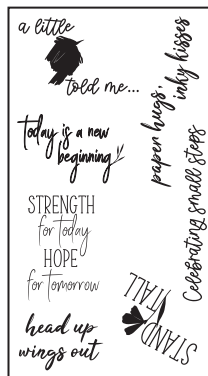 a little
told me...
Today is a new
beginning
STRENGTH
for today
HOPE
for tomorrow
head up
wings out
paper hugs,
inky kisses
Celebrating small steps
STAND
TALL